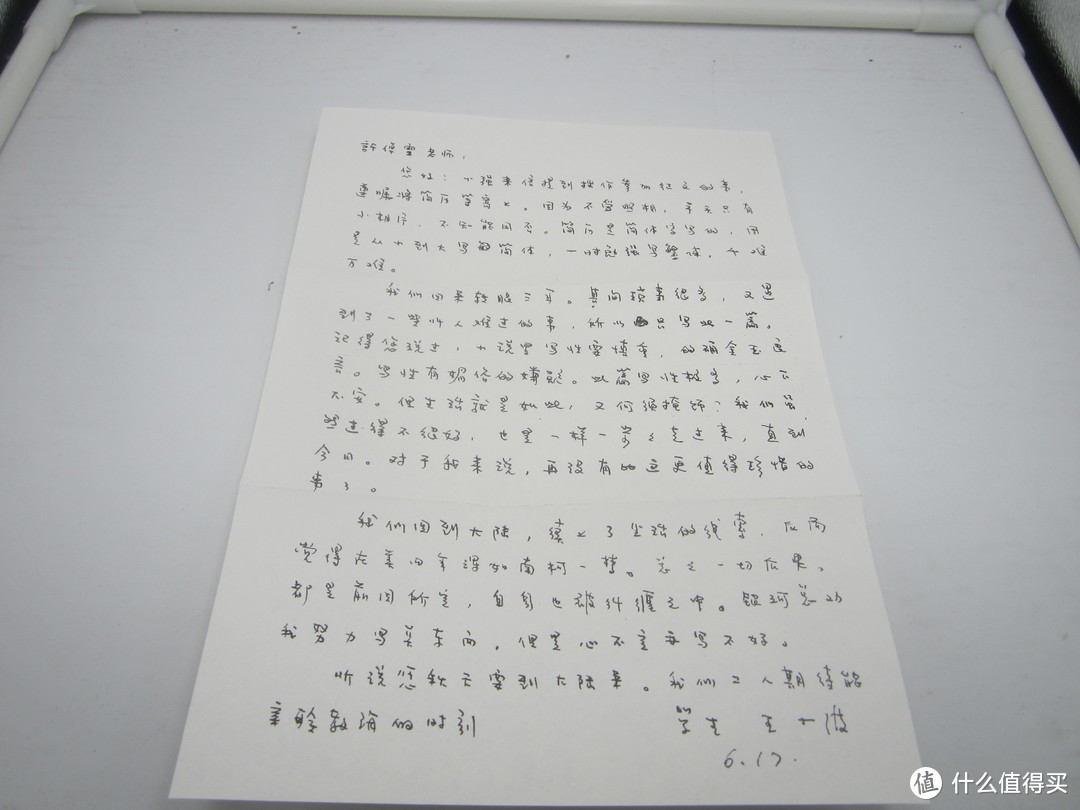 許倬雲老师，
您好：小强来信提到投你参加征文的事，
遵嘱将简历草寄上。因为不爱照相，手头只有
小相片，不知能用否。简历是简体字写的，因
是从小到大写的简体，一时勉强写繁体，千难
万难。
我们回来转眼三年。其间琐事很多，又遇
到了一些让人难过的事，所以只写此一篇。
记得您说过，小说里写性要慎重，的确金玉良
言。写性有媚俗的嫌疑。此篇写性极多，心下
不安。但生活就是如此，又何须掩饰？我们虽
然过得不很好，也是一样一步步走过来，直到
今日。对于我来说，再没有比这更值得珍惜的
事了。
我们回到大陆，续上了生活的线索，反而
觉得在美四年浑如南柯一梦。总之一切后果，
都是前因所定，自身也被纠缠之中。银河总劝
我努力写英东西，但是心不定要写不好。
听说您秋天要到大陆来。我们二人期待能
亲聆教诲的时刻
学生 王小波
6.17.
值 什么值得买